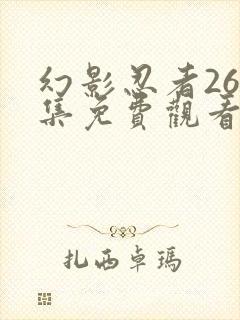 幻影忍者26
集免費觀看
扎西卓瑪